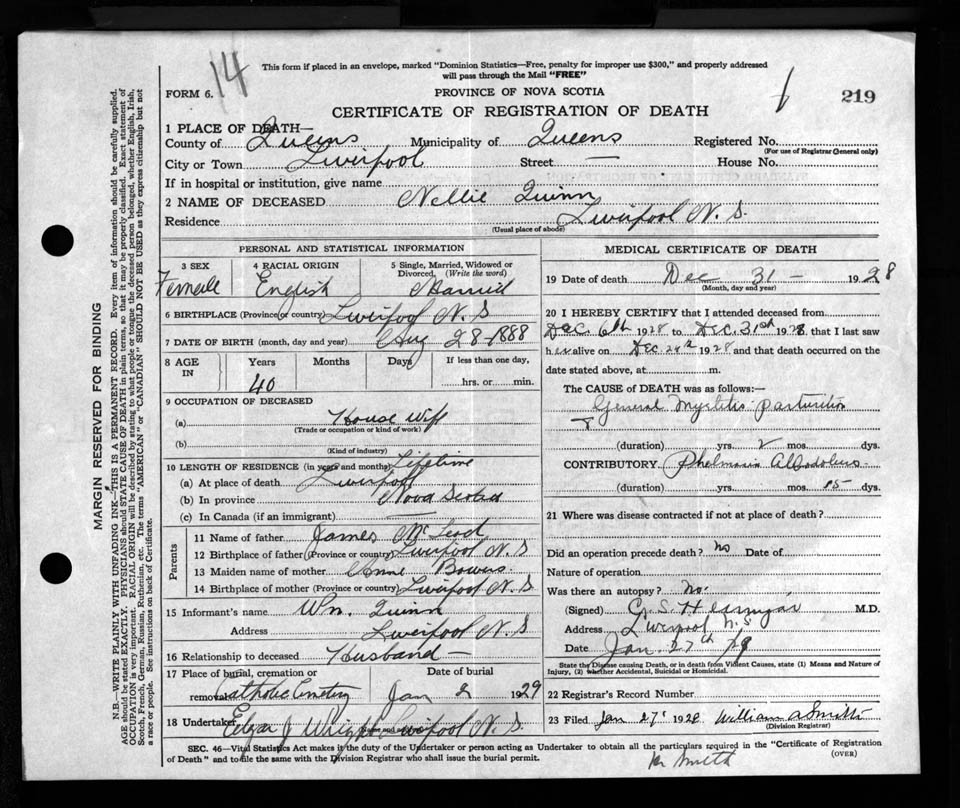 14
This form if placed in an envelope, marked "Dominion Statistics—Free, penalty for improper use $300," and properly addressed
will pass through the Mail "FREE"
FORM 6.
PROVINCE OF NOVA SCOTIA
219
CERTIFICATE OF REGISTRATION OF DEATH
1 PLACE OF DEATH—
County of Queens Municipality of Queens Registered No.
(For use of Registrar General only)
City or Town Liverpool Street — House No.
If in hospital or institution, give name
2 NAME OF DECEASED Nellie Quinn
Residence Liverpool N. S.
(Usual place of abode)
MARGIN RESERVED FOR BINDING
N.B.—WRITE PLAINLY WITH UNFADING INK—THIS IS A PERMANENT RECORD. Every item of information should be carefully supplied.
AGE should be stated EXACTLY. PHYSICIANS should STATE CAUSE OF DEATH in plain terms, so that it may be properly classified. Exact statement of
OCCUPATION is very important. RACIAL ORIGIN will be described by stating to what people or tongue the deceased person belonged, whether English, Irish,
Scotch, French, German, Russian, Ruthenian, etc. The terms "AMERICAN" or "CANADIAN" SHOULD NOT BE USED as they express citizenship but not
a race or people. See instructions on back of Certificate.
PERSONAL AND STATISTICAL INFORMATION
3 SEX
Female
4 RACIAL ORIGIN
English
5 Single, Married, Widowed or
Divorced, (Write the word)
Married
6 BIRTHPLACE (Province or country) Liverpool N. S
7 DATE OF BIRTH (month, day and year) Aug 28-1888
8 AGE
IN
Years
40
Months
Days
If less than one day,
hrs. or min.
9 OCCUPATION OF DECEASED
(a) House wife
(Trade or occupation or kind of work)
(b)
(Kind of industry)
10 LENGTH OF RESIDENCE (in years and months) Lifetime
(a) At place of death Liverpool
(b) In province Nova Scotia
(c) In Canada (if an immigrant) —
Parents
11 Name of father James McLeod
12 Birthplace of father (Province or country) Liverpool N. S
13 Maiden name of mother Anne Bowers
14 Birthplace of mother (Province or country) Liverpool N. S
15 Informant's name Wm. Quinn
Address Liverpool N. S
16 Relationship to deceased Husband —
17 Place of burial, cremation or
removal Catholic Cemetery
Date of burial
Jan 2 1929
18 Undertaker Edgar J Liverpool N. S.
MEDICAL CERTIFICATE OF DEATH
19 Date of death Dec 31 – 1928
(Month, day and year)
20 I HEREBY CERTIFY that I attended deceased from
Dec. 6th 1928 to Dec. 31st 1928, that I last saw
her alive on Dec 1928 and that death occurred on the
date stated above, at m.
The CAUSE OF DEATH was as follows:
General
(duration) yrs. 2 mos. dys.
CONTRIBUTORY
(duration) yrs. mos. 15 dys.
21 Where was disease contracted if not at place of death?
Did an operation precede death? No Date of
Nature of operation
Was there an autopsy? No.
(Signed) M.D.
Address Liverpool N. S
Date Jan. 27th /29
State the Disease causing Death, or in death from Violent Causes, state (1) Means and Nature of
Injury, (2) whether Accidental, Suicidal or Homicidal.
22 Registrar's Record Number
23 Filed Jan 27th 1928 William A Smith
(Division Registrar)
SEC. 46—Vital Statistics Act makes it the duty of the Undertaker or person acting as Undertaker to obtain all the particulars required in the "Certificate of Registration
of Death" and to file the same with the Division Registrar who shall issue the burial permit.
(OVER)
Smith